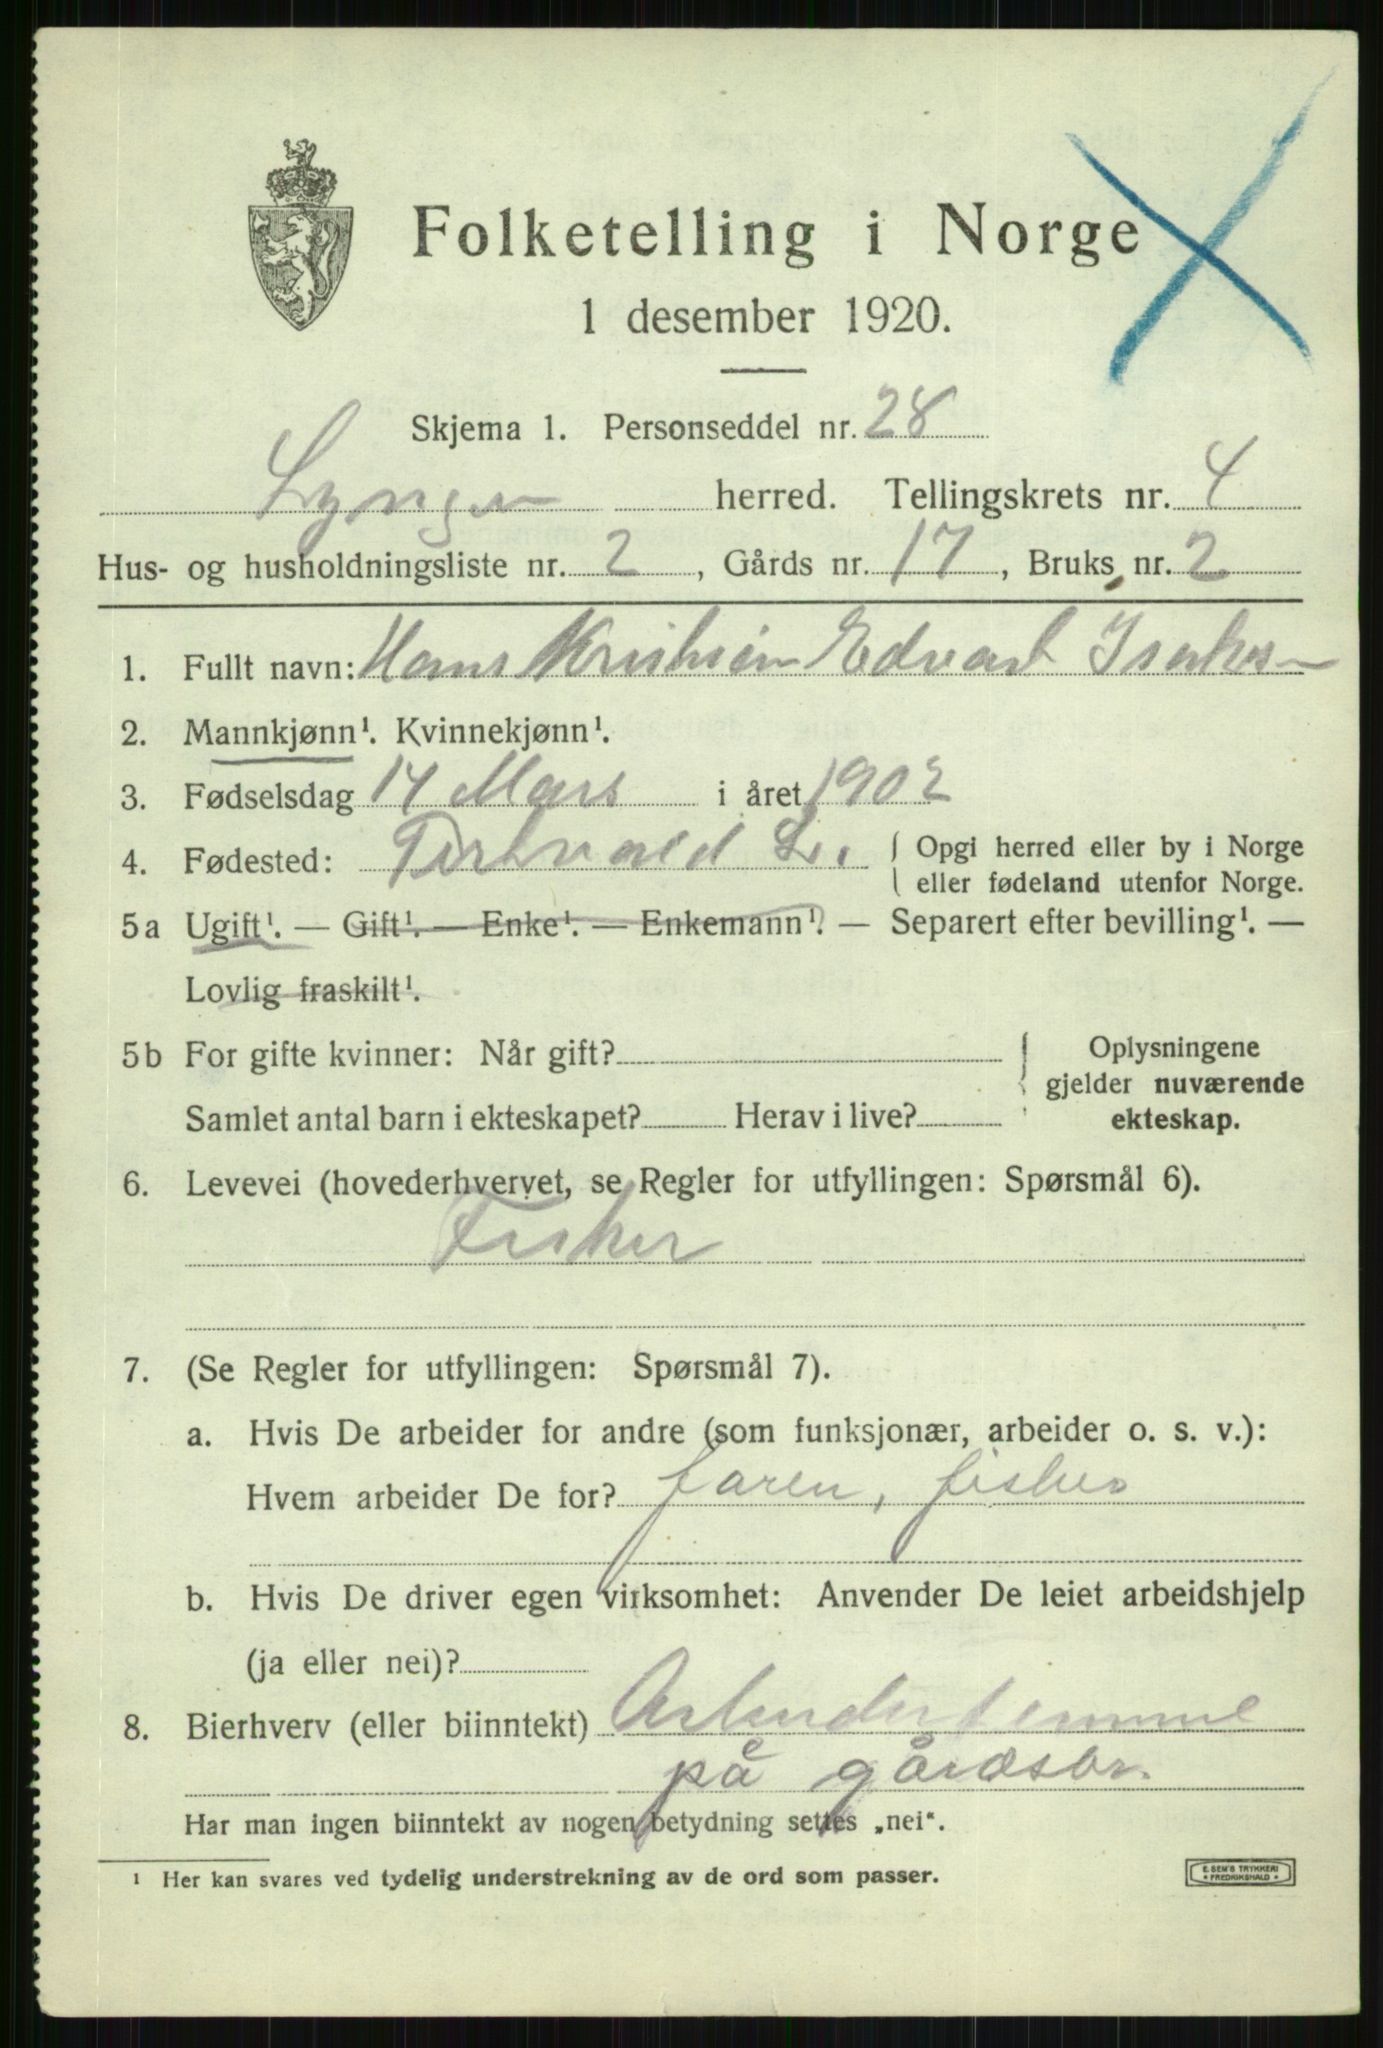 Folketelling i Norge
1 desember 1920.
Skjema 1. Personseddel nr. 28
Lyngen herred. Tellingskrets nr. 4
Hus- og husholdningsliste nr. 2, Gårds nr. 17, Bruks nr. 2
1. Fullt navn: Hans Kristian Edvart Isaksen
2. Mannkjønn¹. Kvinnekjønn¹.
3. Fødselsdag 14 Mars i året 1902
4. Fødested: { Opgi herred eller by i Norge
eller fødeland utenfor Norge.
5a Ugift¹. — Gift¹. — Enke¹. — Enkemann¹. — Separert efter bevilling¹. —
Lovlig fraskilt¹.
5b For gifte kvinner: Når gift? { Oplysningene
gjelder nuværende
Samlet antal barn i ekteskapet? Herav i live? ekteskap.
6. Levevei (hovederhvervet, se Regler for utfyllingen: Spørsmål 6).
Fisker
7. (Se Regler for utfyllingen: Spørsmål 7).
a. Hvis De arbeider for andre (som funksjonær, arbeider o. s. v.):
Hvem arbeider De for? faren, fisker
b. Hvis De driver egen virksomhet: Anvender De leiet arbeidshjelp
(ja eller nei)?
8. Bierhverv (eller biinntekt)
på gårdsbr.
Har man ingen biinntekt av nogen betydning settes „nei“.
¹ Her kan svares ved tydelig understrekning av de ord som passer.
E. SEM'S TRYKKERI
* FREDRIKSHALD *